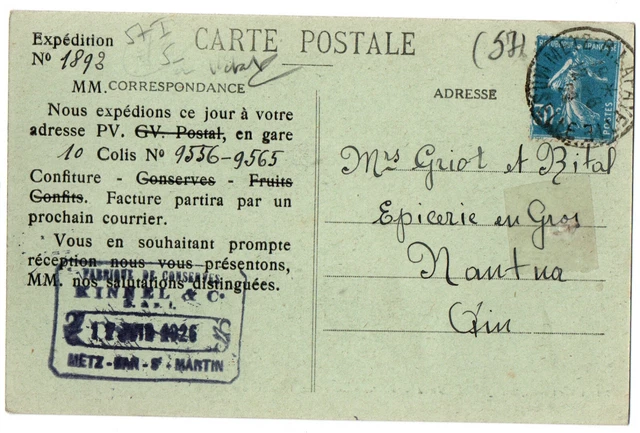 CARTE POSTALE
Expédition
Nº 1893
57 I
(57)
MM. CORRESPONDANCE
Nous expédions ce jour à votre
adresse PV. GV. Postal, en gare
10 Colis Nº 9556-9565
Confiture - Conserves - Fruits
Confits. Facture partira par un
prochain courrier.
Vous en souhaitant prompte
réception nous vous présentons,
MM. nos salutations distinguées.
FABRIQUE DE CONSERVES
KINNEL & Cº
S.A.R.L.
1926
METZ-BAN-Sᵗ-MARTIN
ADRESSE
POSTES
Mrs Griot et Rital
Epicerie en Gros
Nantua
Ain